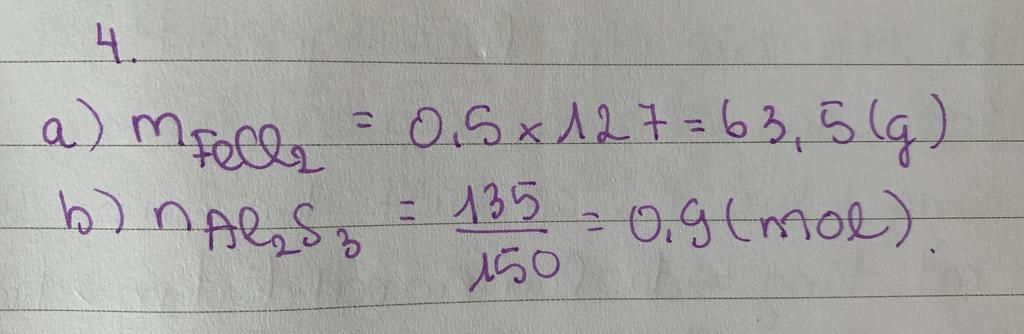 4.
a) mFeCl2 = 0,5 x 127 = 63,5 (g)
b) nAl2S3 = 135/150 = 0,9 (mol).